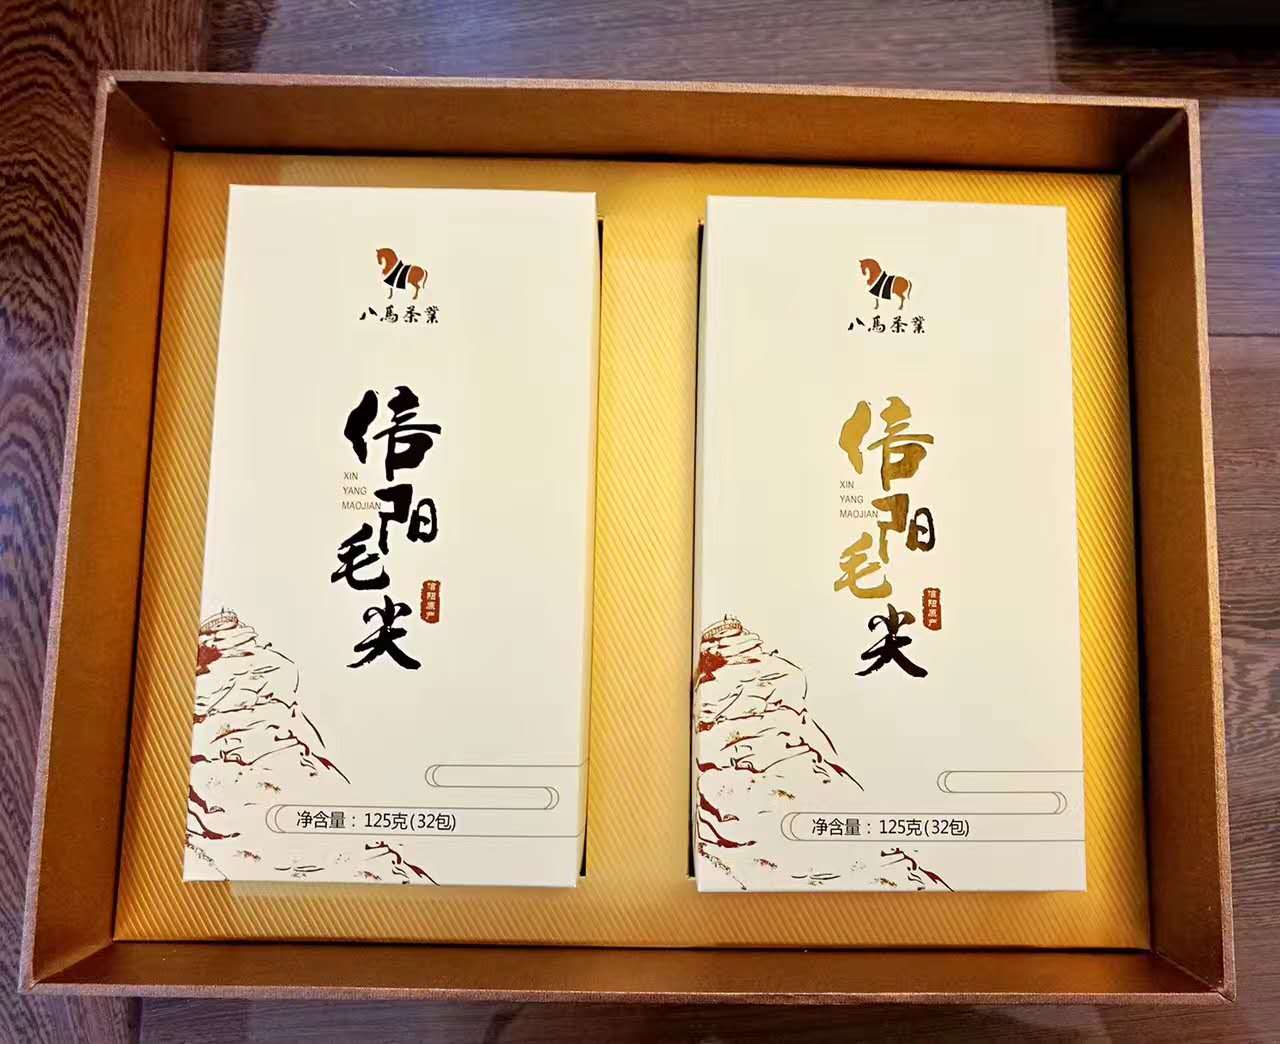 八馬茶業
信阳毛尖
XIN
YANG
MAOJIAN
信阳原产
净含量：125克(32包)
八馬茶業
信阳毛尖
XIN
YANG
MAOJIAN
信阳原产
净含量：125克(32包)